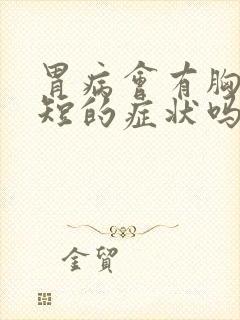 胃病會有胸
短的症状吗
金贸